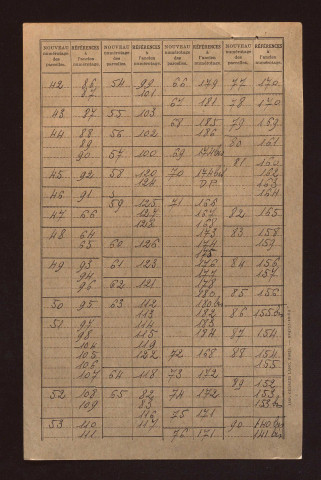 NOUVEAU numérotage des parcelles.
RÉFÉRENCES à l'ancien numérotage.
42 86
87
43 87
44 88
89
90
45 92
46 91
47 66
48 64
65
49 93
94
96
50 95
51 97
98
104
105
106
107
52 108
109
53 110
111
NOUVEAU numérotage des parcelles.
RÉFÉRENCES à l'ancien numérotage.
54 99
101
55 103
56 102
57 100
58 120
124
59 125
127
128
60 126
61 123
62 121
63 112
113
114
115
119
122
64 118
65 82
83
116
117
NOUVEAU numérotage des parcelles.
RÉFÉRENCES à l'ancien numérotage.
66 179
67 181
68 185
186
69 174 bis
70 174 bis
DP
71 166
167
168
173
174
175
176
177
178
180
180 bis
182
183
184
72 168
73 172
74 172
75 171
76 171
NOUVEAU numérotage des parcelles.
RÉFÉRENCES à l'ancien numérotage.
77 170
78 170
79 169
80 161
81 160
162
163
164
82 165
83 158
159
84 156
157
85 156
86 155 bis
87 154
88 154
155
89 152
153
153 bis
90 140 bis
141 bis